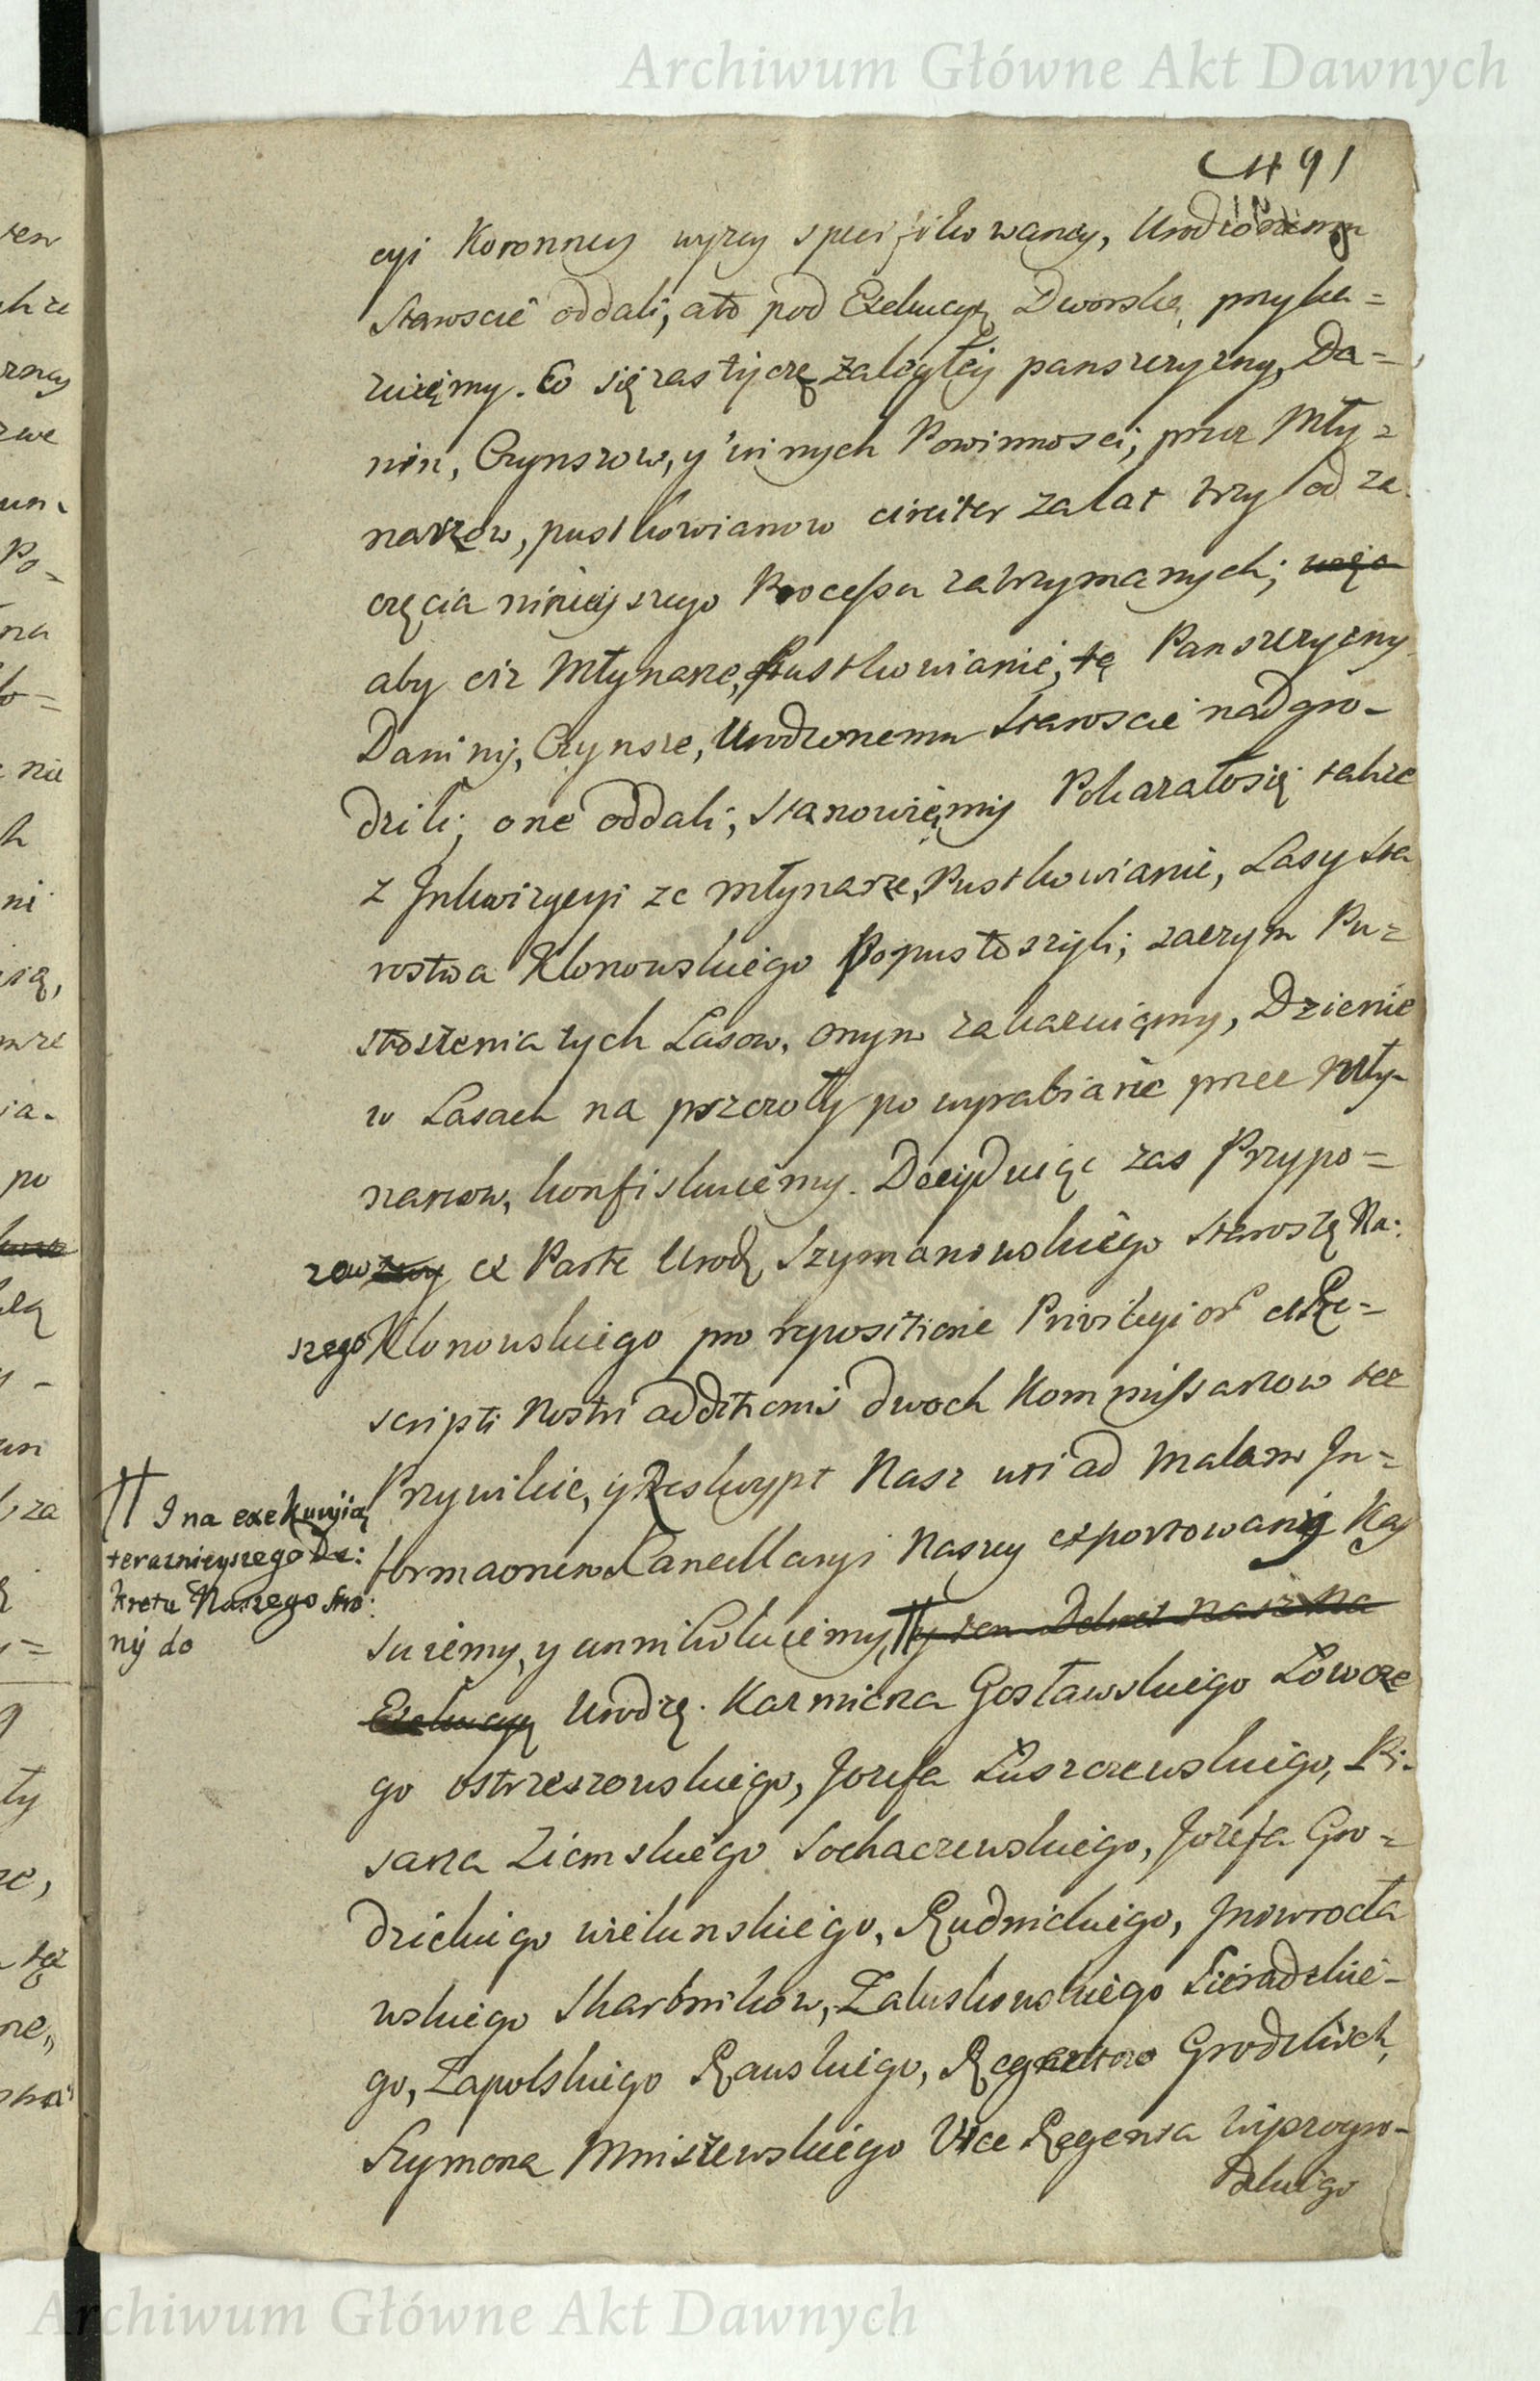 Archiwum Główne Akt Dawnych
491
cyi Koronney wyzey specifikowaney, Urodzonemu
Staroscie oddali, a to pod Exekucyą Dworską przyka=
zuięmy. Co się zas tycze zaległey panszczyzny, Da=
nin, Czynszow, y innych Powinnosci, przez Mły=
narzow, pustkowianow circiter za lat trzy od za
częcia ninieyszego Processu zatrzymanych;
aby ciz Młynarze, Pustkowianie, tę Panszczyzny
Daniny, Czynsze, Urodzonemu Staroscie nadgro-
dzili, one oddali, stanowięmy Pokazało się takze
z Inkwizycyi ze Młynarze, Pustkowianie, Lasy Sta
rostwa Klonowskiego popustoszyli; zaczym Pu=
stoszenia tych Lasow, onym zakazuięmy, Dzienie
w Lasach na pszczoły po wyrabiane przez Mły-
narzow, konfiskuiemy. Decyduiąc zas Przypo=
zew ex Parte Urodz Szymanowskiego Starostę Na:
szego Klonowskiego pro repositione Privilegior et Re=
scripti Nostri additionis dwoch Kommissarzow tez
Przywileie, y Reskrypt Nasz uti ad malam In=
formaonem Cancellaryi Naszey exportowany Kas
suiemy, y annihilluiemy, # y ten Dekret Nasz Na
Exekucyą Urodzę. Kazmierza Gosławskiego Łowcze
go Ostrzeszowskiego, Jozefa Łuszczewskiego, Pi=
sarza Ziemskiego Sochaczewskiego, Jozefa Gro=
dzickiego wielunskiego, Rudnickiego, Inowrocła
wskiego Skarbnikow, Załuskowskiego Sieradzkie-
go, Zapolskiego Rawskiego, Regentow Grodzkich,
Szymona Mniszewskiego Vice Regenta
dzkiego
# I na exekucyią
teraznieyszego De:
kretu Naszego Stro:
ny do
Archiwum Główne Akt Dawnych